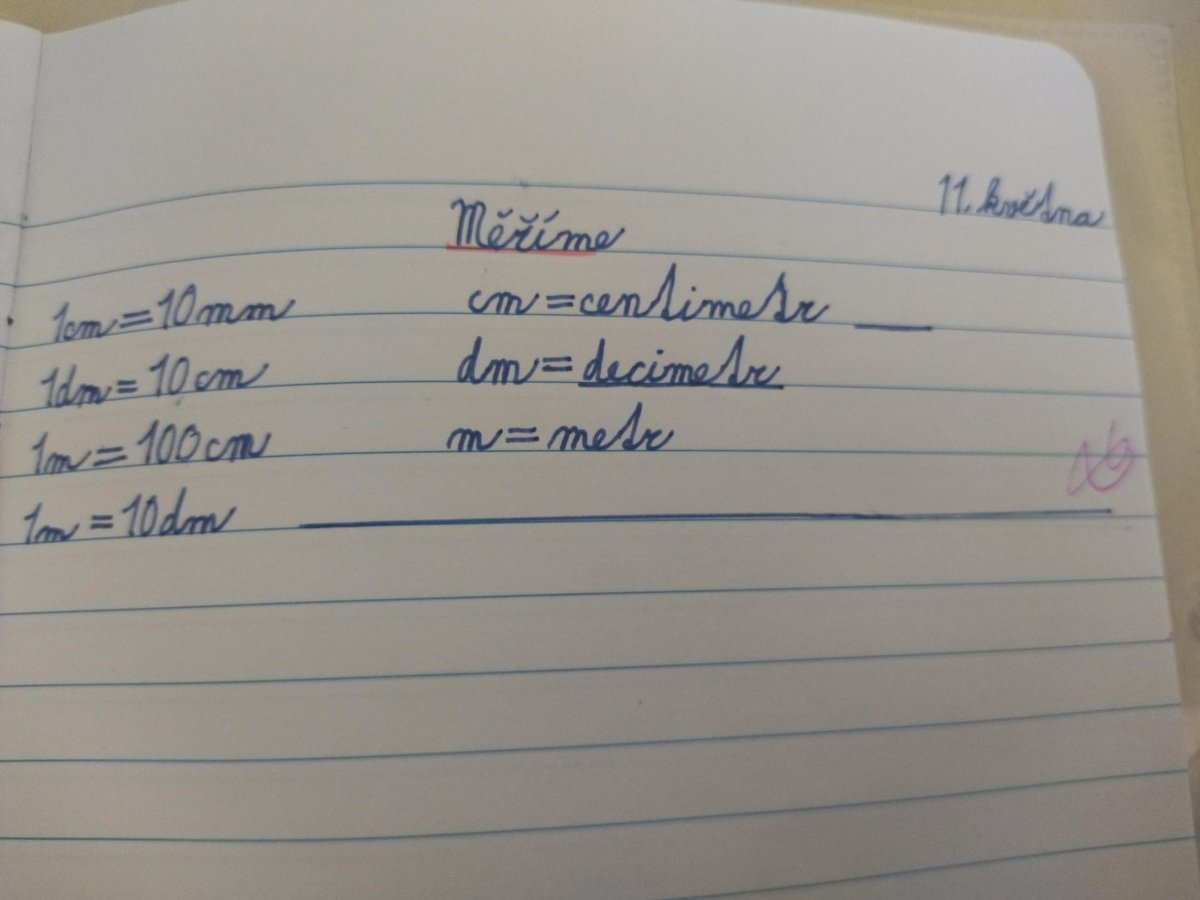 11. května
Měříme
1cm=10mm cm=centimetr
1dm=10cm dm=decimetr
1m=100cm m=metr
1m=10dm